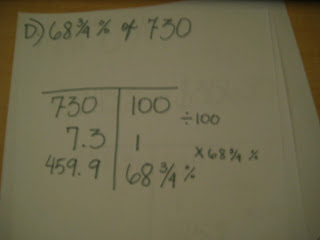 D) 68 3/4 % of 730
730 100
÷100
7.3 1
× 68 3/4 %
459.9 68 3/4 %